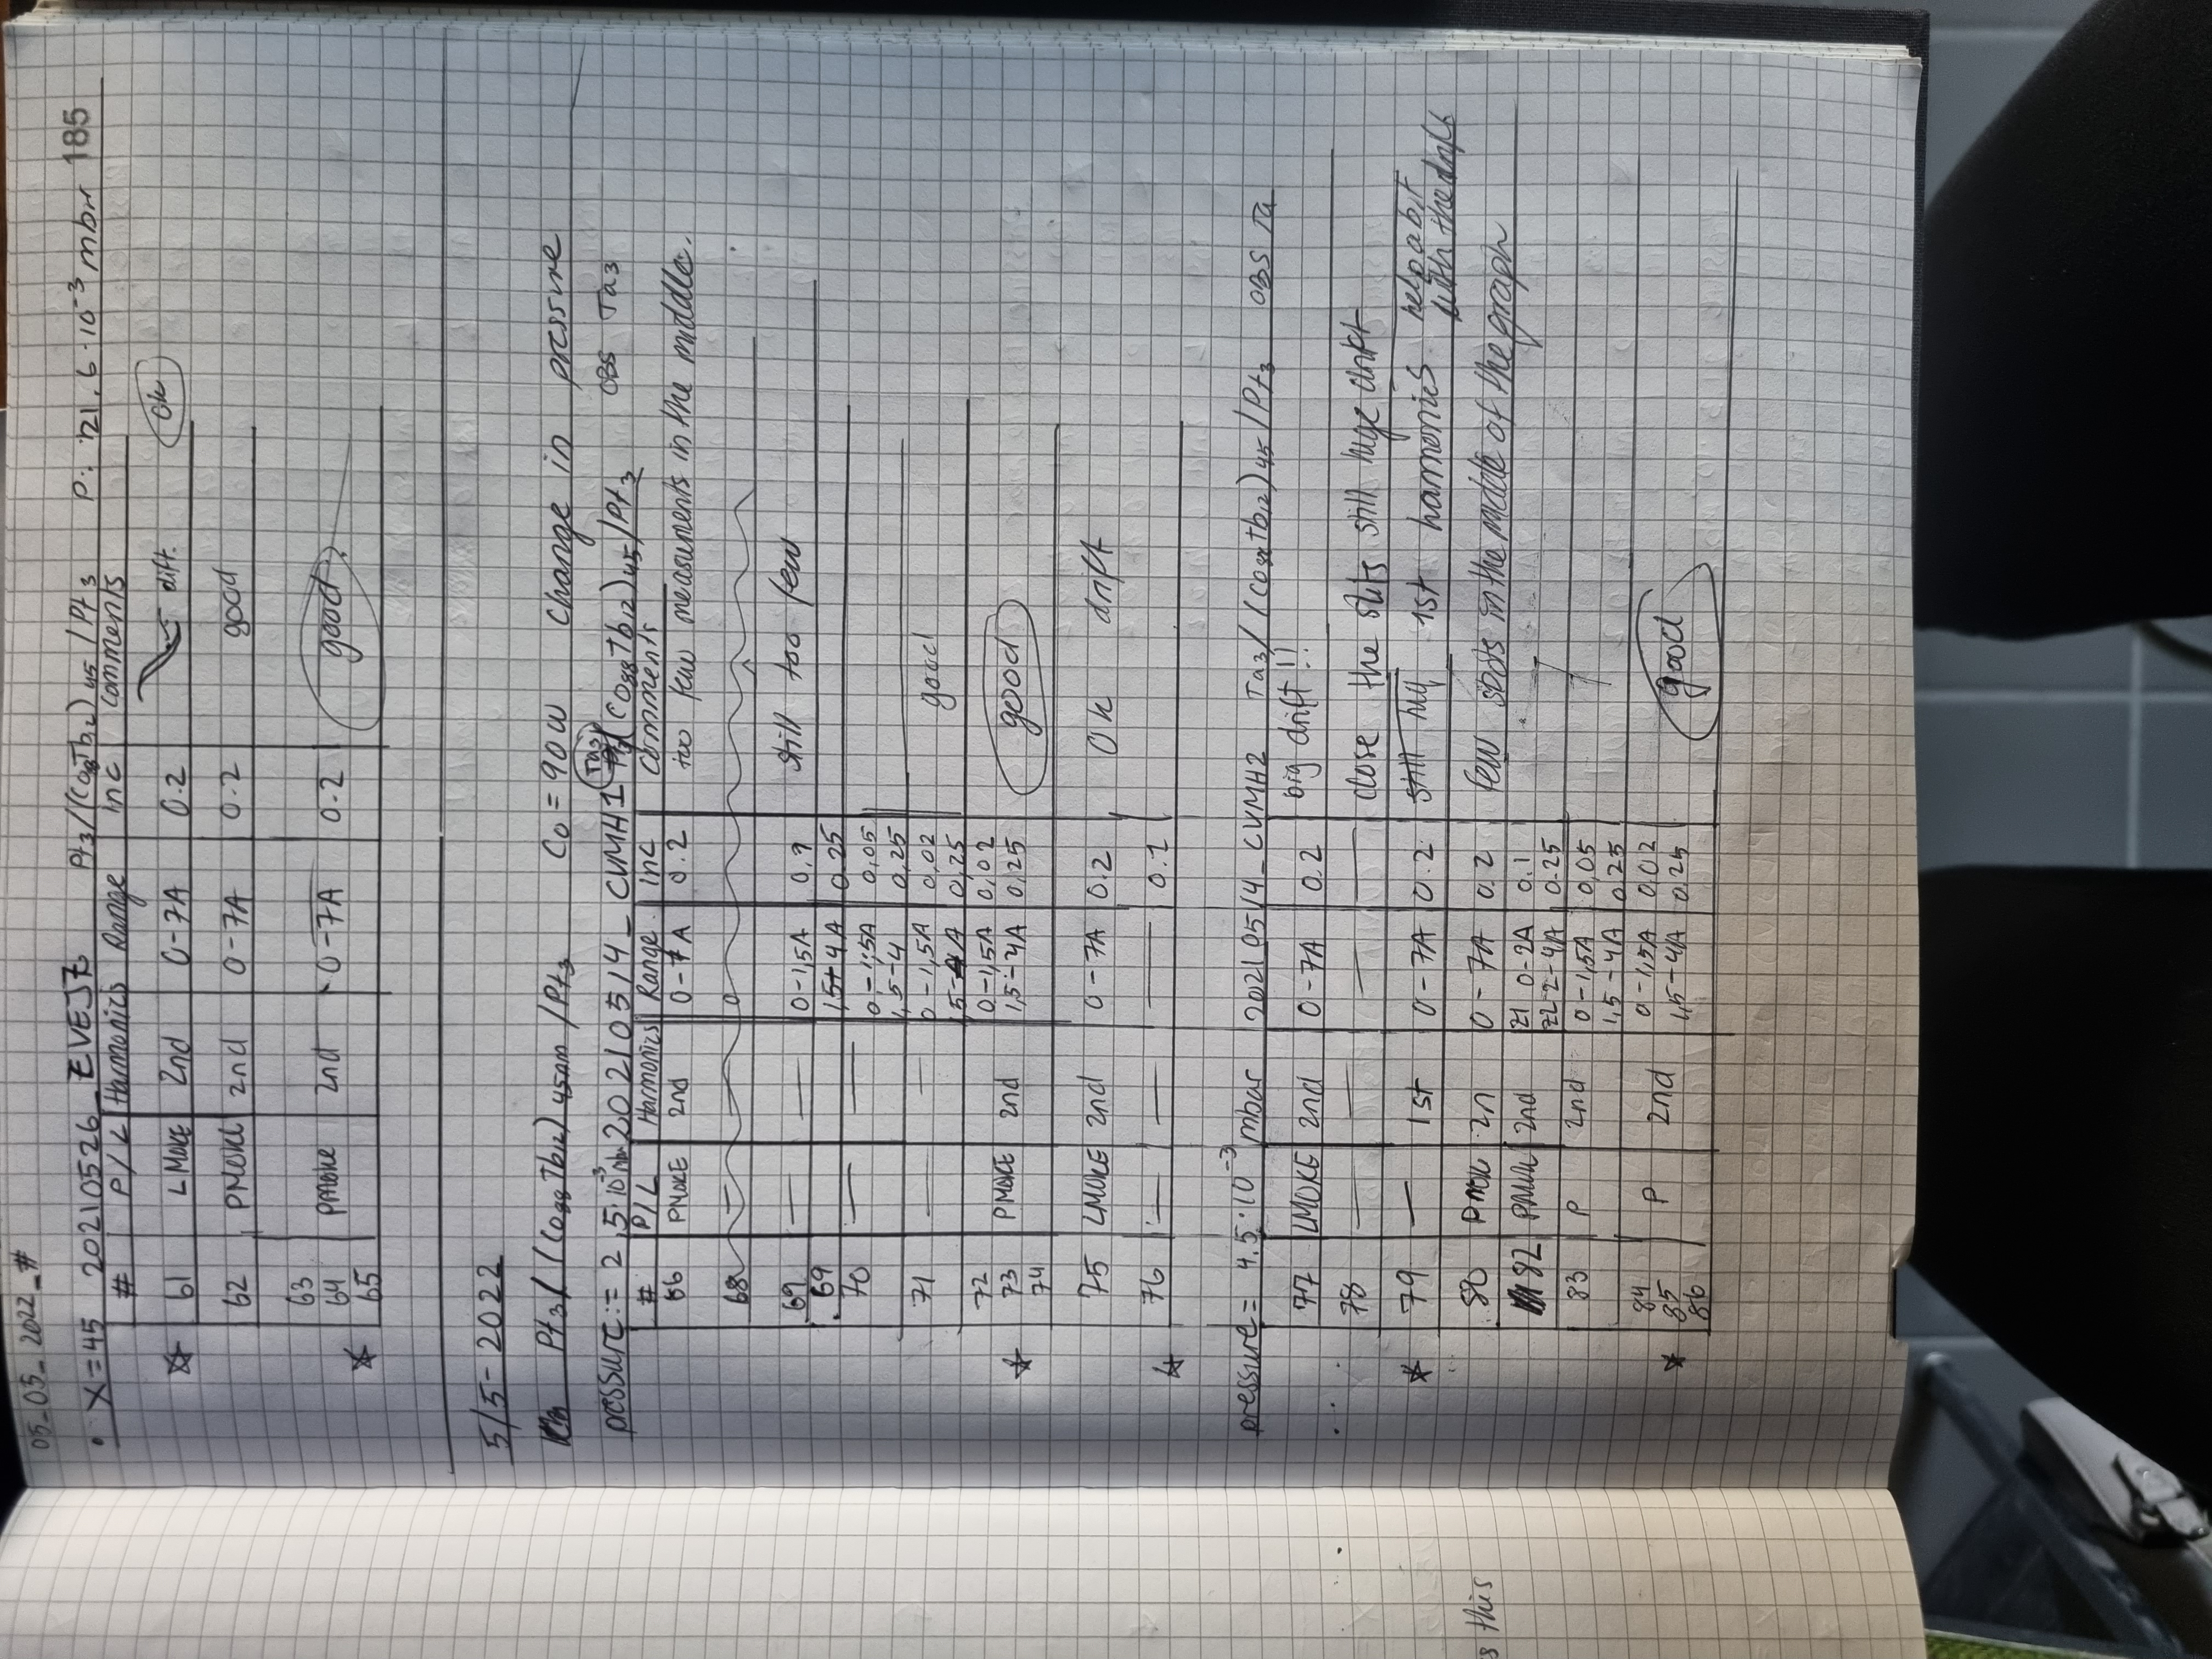 05_05_2022_#
185
• X=45 20210526_EVEJZ Pt3/(Co88Tb12)45/Pt3 P: 21.6·10⁻³ mbar
# P/L Harmonics Range inc comments
61 LMOKE 2nd 0-7A 0.2 dift. Ok
62 PMOKE 2nd 0-7A 0.2 good
63
64 PMOKE 2nd 0-7A 0.2 good
65
5/5-2022
Pt3/(Co88Tb12)45nm/Pt3 Co=90W Change in pressure
pressure:= 2,5·10⁻³ mbar 20210514_CVMH1 Ta3/(Co88Tb12)45/Pt3 OBS Ta3
# P/L Harmonics Range inc comments
66 PMOKE 2nd 0-7A 0.2 too few measuments in the middle.
68 — — 0
69 — — 0-1,5A still too few
69 1,5-4A 0.25
70 — — 0-1,5A 0,05
1,5-4 0,25
71 — — 0-1,5A 0,02 good
1,5-4A 0,25
72 0-1,5A 0,02
73 PMOKE 2nd 1,5-4A 0,25 good
74
75 LMOKE 2nd 0-7A 0.2 Ok drift
76 — — — 0.1
pressure= 4.5·10⁻³ mbar 20210514_CVMH2 Ta3/(Co88Tb12)45/Pt3 OBS Ta
77 LMOKE 2nd 0-7A 0.2 big drift!!
78 — — — — close the slits still huge drift
79 — 1st 0-7A 0.2 1st harmonics help a bit
with the drift
80 PMOK 2n 0-7A 0.2 few spots in the middle of the graph
82 PMOK 2nd Z1 0-2A 0.1
Z2 2-4A 0.25
83 P 2nd 0-1,5A 0,05
1,5-4A 0,25
84 0-1,5A 0,02
85 P 2nd 1,5-4A 0.25 good
86
s this